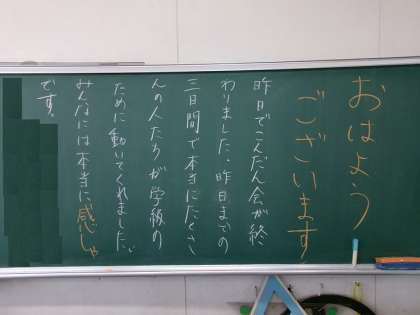 おはよう
ございます
昨日でこんだん会が終
わりました。昨日までの
三日間で本当にたくさ
んの人たちが学級の
ために動いてくれました。
みんなには本当に、感しゃ
です。